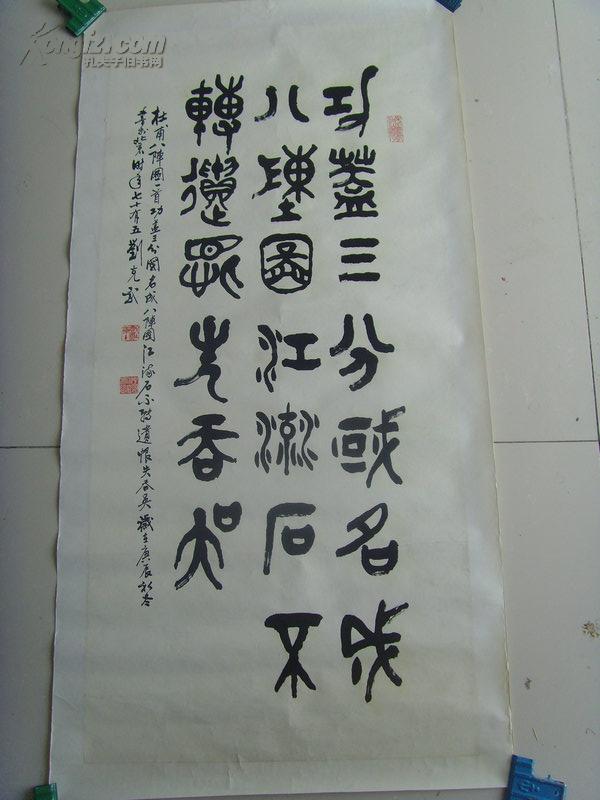 功蓋三分或名成
八陣圖江流石不
轉遺恨失吞吳
杜甫八陣圖一首功蓋三分國名成八陣圖江流石不轉遺恨失吞吳歲在庚辰初冬
時年七十有五劉克
Kongfz.com
孔夫子旧书网